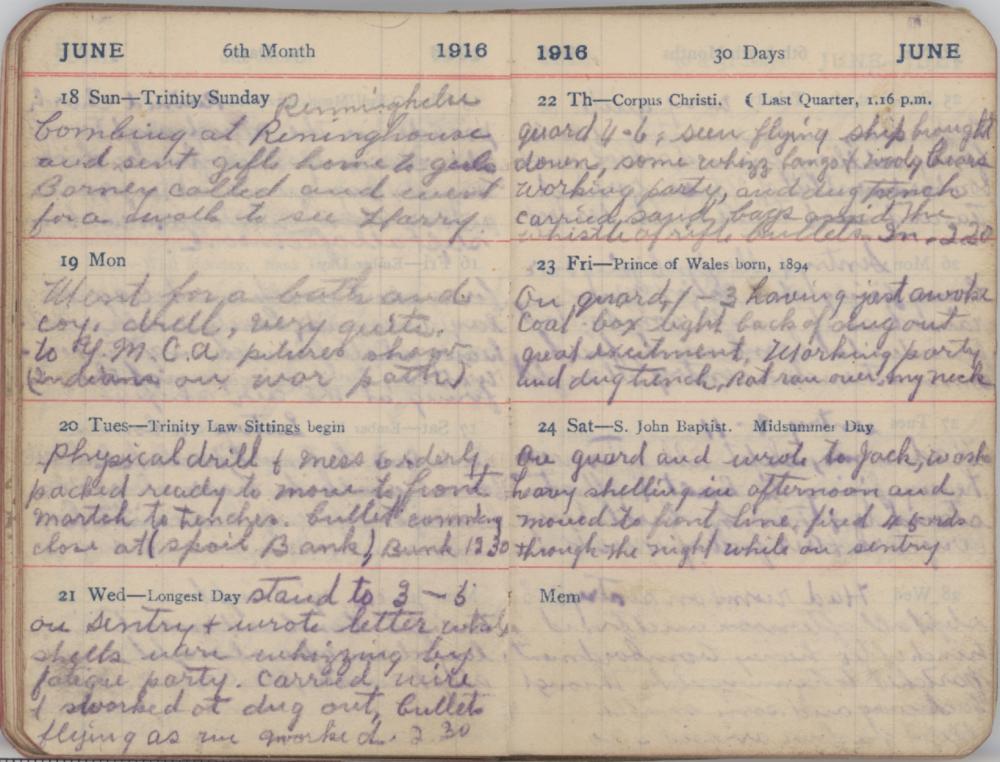 JUNE 6th Month 1916
18 Sun—Trinity Sunday Renninghelst
Bombing at Reninghouse
and sent gifts home to girls
Barney called and went
for a walk to see Harry.
19 Mon
Went for a bath and
coy. drill, very quite.
to Y.M.C.A pitures show
(Indians on war path)
20 Tues—Trinity Law Sittings begin
Physical drill & mess orderly,
packed ready to move to front
martch to tenches. bullet comming
close at (Spoil Bank), Bunk 12 30
21 Wed—Longest Day stand to 3 – 5
on sentry + wrote letter whilst
shells were whizzing by
fatigue party. carried, wire
& sworked at dug out, bullets
flying as we worked. 2 30
1916 30 Days JUNE
22 Th—Corpus Christi. ☾ Last Quarter, 1.16 p.m.
guard 4-6, seen flying ship brought
down, some whizz bangs & wooly bears
working party, and dug trench
carried, sand, bags amid the
whistle of rifle bullets. In. 2 20
23 Fri—Prince of Wales born, 1894
On guard, 1-3 having just awoke
coal box light back of dug out
great excitment. Working party
and dug trench, rat ran over my neck
24 Sat—S. John Baptist. Midsummer Day
On guard and wrote, to Jack,
heavy shelling in afternoon and
moved to front line, fired 4
through the night while on sentry
Mem